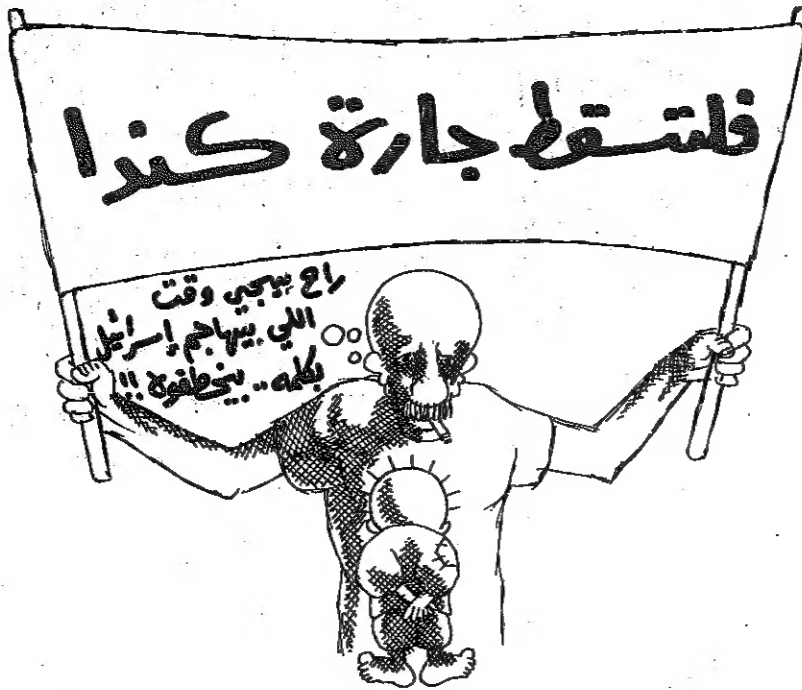 فلتسقط جارة كندا
راح ييجي وقت
اللي بيهاجم إسرائيل
بكلمه.. بيخطفوه !!